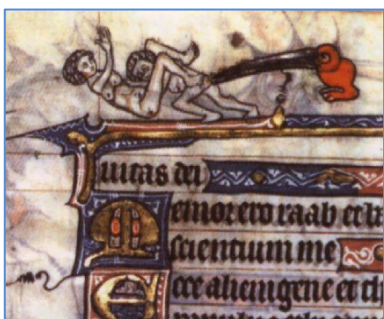 iuitas dei
Memor ero raab et b
scientium me
Ecce alienigene et t